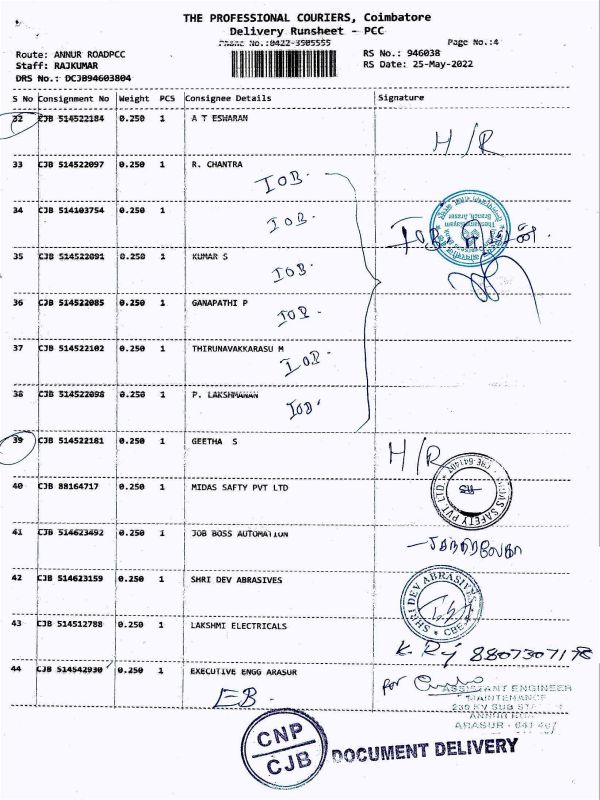 THE PROFESSIONAL COURIERS, Coimbatore
Delivery Runsheet - PCC
Phone No.:0422-3505555
Page No.:4
Route: ANNUR ROADPCC
RS No.: 946038
Staff: RAJKUMAR
RS Date: 25-May-2022
DRS No.: DCJB94603804
S No Consignment No Weight PCS Consignee Details Signature
32 CJB 514522184 0.250 1 A T ESWARAN H/R
33 CJB 514522097 0.250 1 R. CHANTRA
IOB
34 CJB 514103754 0.250 1
IOB.
IOB
35 CJB 514522091 0.250 1 KUMAR S
IOB.
36 CJB 514522085 0.250 1 GANAPATHI P
IOB.
37 CJB 514522102 0.250 1 THIRUNAVAKKARASU M
IOB.
38 CJB 514522098 0.250 1 P. LAKSHMANAN
IOB
39 CJB 514522181 0.250 1 GEETHA S H/R
40 CJB 88164717 0.250 1 MIDAS SAFTY PVT LTD
MIDAS SAFETY PVT LTD
41 CJB 514623492 0.250 1 JOB BOSS AUTOMATION
42 CJB 514623159 0.250 1 SHRI DEV ABRASIVES
SHRI DEV ABRASIVES
CBE
43 CJB 514512788 0.250 1 LAKSHMI ELECTRICALS
8807307178
44 CJB 514542930 0.250 1 EXECUTIVE ENGG ARASUR
EB.
for
ASSISTANT ENGINEER
MAINTENANCE
230 KV SUB
ARASUR - 641 407
CNP
CJB
DOCUMENT DELIVERY